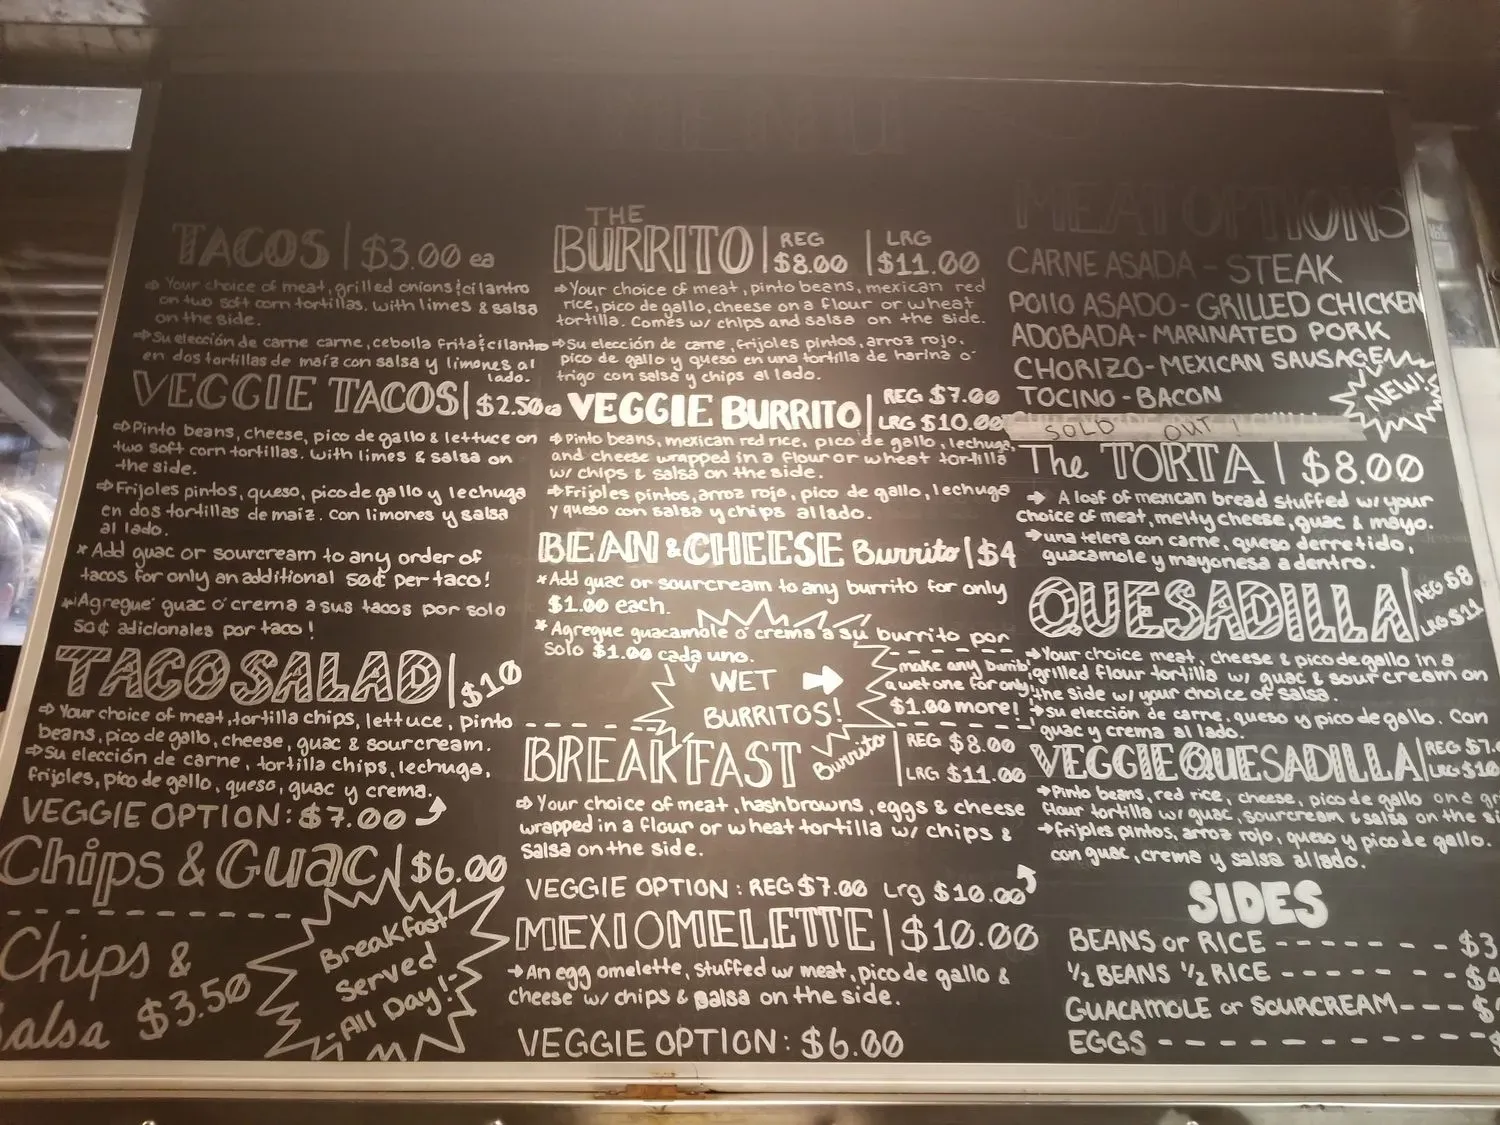 MENU
TACOS | $3.00 ea
⇨ Your choice of meat, grilled onions & cilantro
on two soft corn tortillas. with limes & salsa
on the side.
⇨ Su elección de carne carne, cebolla frita & cilantro
en dos tortillas de maíz con salsa y limones al
lado.
VEGGIE TACOS | $2.50 ea
⇨ Pinto beans, cheese, pico de gallo & lettuce on
two soft corn tortillas. with limes & salsa on
the side.
⇨ Frijoles pintos, queso, pico de gallo y lechuga
en dos tortillas de maíz. con limones y salsa
al lado.
* Add guac or sourcream to any order of
tacos for only an additional 50¢ per taco!
* Agregue guac ó crema a sus tacos por solo
50¢ adicionales por taco!
TACO SALAD | $10
⇨ Your choice of meat, tortilla chips, lettuce, pinto
beans, pico de gallo, cheese, guac & sourcream.
⇨ Su elección de carne, tortilla chips, lechuga,
frijoles, pico de gallo, queso, guac y crema.
VEGGIE OPTION: $7.00
Chips & Guac | $6.00
Chips &
Salsa $3.50
Breakfast
Served
- All Day! -
THE
BURRITO | REG $8.00 | LRG $11.00
⇨ Your choice of meat, pinto beans, mexican red
rice, pico de gallo, cheese on a flour or wheat
tortilla. Comes w/ chips and salsa on the side.
⇨ Su elección de carne, frijoles pintos, arroz rojo,
pico de gallo y queso en una tortilla de harina o
trigo con salsa y chips al lado.
VEGGIE BURRITO | REG $7.00
LRG $10.00
⇨ Pinto beans, mexican red rice, pico de gallo, lechuga,
and cheese wrapped in a flour or wheat tortilla
w/ chips & salsa on the side.
⇨ Frijoles pintos, arroz rojo, pico de gallo, lechuga
y queso con salsa y chips al lado.
BEAN & CHEESE Burrito | $4
* Add guac or sourcream to any burrito for only
$1.00 each.
* Agregue guacamole ó crema a su burrito por
solo $1.00 cada uno.
WET
BURRITOS!
make any burrito
a wet one for only
$1.00 more!
BREAKFAST Burrito | REG $8.00
LRG $11.00
⇨ Your choice of meat, hashbrowns, eggs & cheese
wrapped in a flour or wheat tortilla w/ chips &
salsa on the side.
VEGGIE OPTION: REG $7.00 Lrg $10.00
MEXIOMELETTE | $10.00
→ An egg omelette, stuffed w/ meat, pico de gallo &
cheese w/ chips & salsa on the side.
VEGGIE OPTION: $6.00
MEAT OPTIONS
CARNE ASADA - STEAK
POllO ASADO - GRILLED CHICKEN
ADOBADA - MARINATED PORK
CHORIZO - MEXICAN SAUSAGE
TOCINO - BACON
NEW!
SOLD OUT!
The TORTA | $8.00
→ A loaf of mexican bread stuffed w/ your
choice of meat, melty cheese, guac & mayo.
→ una telera con carne, queso derretido,
guacamole y mayonesa adentro.
QUESADILLA | REG $8
LRG $11
→ Your choice meat, cheese & pico de gallo in a
grilled flour tortilla w/ guac & sour cream on
the side w/ your choice of salsa.
→ Su elección de carne, queso y pico de gallo. Con
guac y crema al lado.
VEGGIE QUESADILLA | REG $7.
LRG $10
→ Pinto beans, red rice, cheese, pico de gallo on a
flour tortilla w/ guac, sourcream & salsa on the
→ Frijoles pintos, arroz rojo, queso y pico de gallo.
con guac, crema y salsa al lado.
SIDES
BEANS or RICE - - - - - - - - $3
½ BEANS ½ RICE - - - - - - - $4
GUACAMOLE or SOURCREAM - - - $
EGGS - - - - - - - - - - - - $